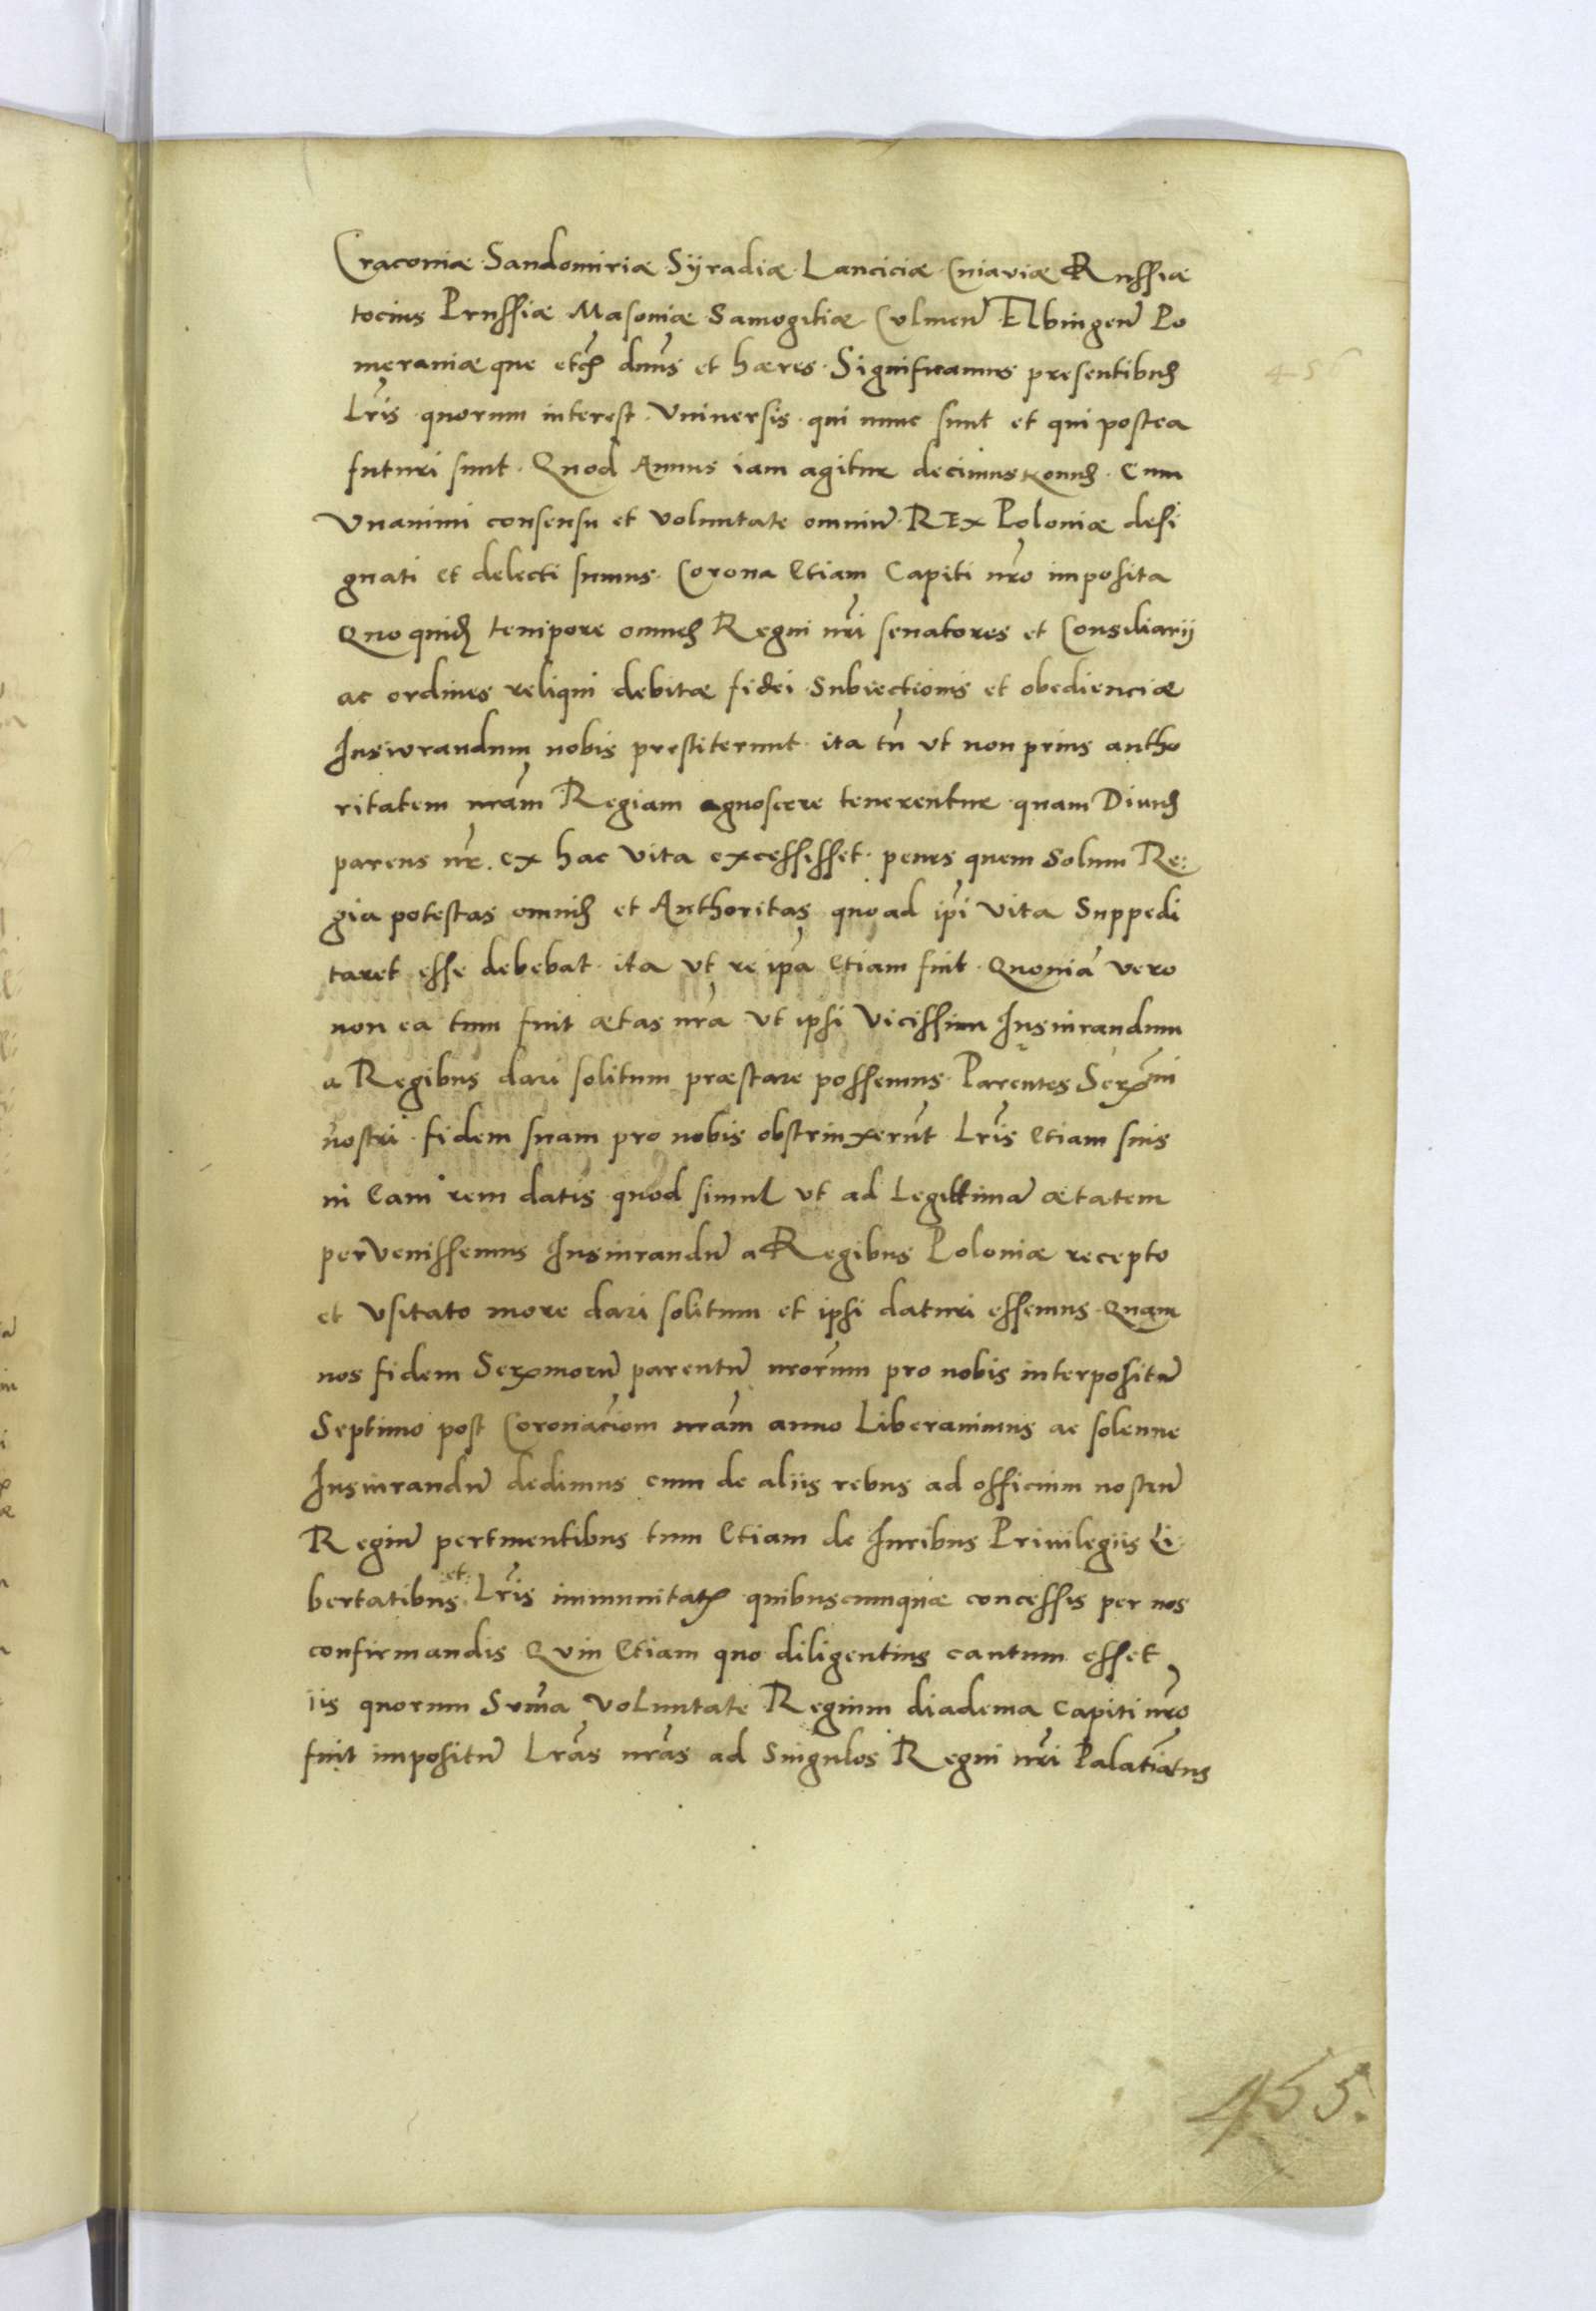 Craconiæ Sandomiriæ Syradiæ Lanciciæ Cuiaviæ Russiæ
tocius Prussiæ Masoviæ Samogitiæ Culmen̄ Elbingen̄ Po
meraniæque etc̄ dnūs et hæres. Significamus presentibus
Lrīs quorum interest Vniversis qui nunc sunt et qui postea
futuri sunt. Quod Annus iam agitur decimus nonus. Cum
Vnanimi consensu et voluntate omniū Rex Poloniæ desi
gnati et delecti sumus. Corona Etiam Capiti nr̄o imposita
Quo quidem tempore omnes Regni nr̄i senatores et Consiliarij
ac ordines reliqui debitæ fidei Subiectionis et obedienciæ
Iusiurandum nobis prestiterunt ita tn̄ vt non prius autho
ritatem nrām Regiam agnoscere tenerentur quam Diuus
parens nr̄. ex hac vita excessisset. penes quem Solum Re:
gia potestas omnis et Authoritas quoad ip̄i vita Suppedi
taret esse debebat ita vt re ip̄a Etiam fuit. Quoniā vero
non ea tum fuit ætas nr̄a vt ipsi Vicissim Iusiurandum
a Regibus dari solitum præstare possemus. Parentes Serx̄mi
nostri. fidem suam pro nobis obstrinxerūt Lrīs Etiam suis
in Eam rem datis quod simul vt ad Legittimā ætatem
perVenissemus Iusiurandū a Regibus Poloniæ recepto
et vsitato more dari solitum et ipsi daturi essemus. Quam
nos fidem Serx̄morū parentū nrōrum pro nobis interpositā
Septimo post Coronac̄iom nrām anno Liberauimus ac solenne
Iusiurandū dedimus cum de aliis rebus ad officium nostrū
Regiū pertinentibus tum Etiam de Iuribus Priuilegiis Li
bertatibus et Lrīs immunitatū quibuscumquæ concessis per nos
confirmandis Quin Etiam quo diligentius cautum esset
iis quorum Sum̄a voluntate Regium diadema Capiti nr̄o
fuit impositū Lrās nrās ad Singulos Regni nr̄i Palatin̄atus
456
455.